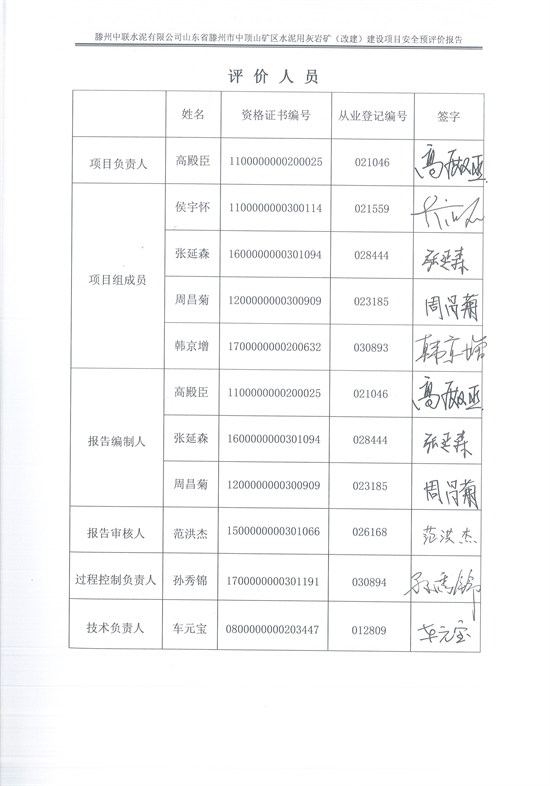 滕州中联水泥有限公司山东省滕州市中顶山矿区水泥用灰岩矿（改建）建设项目安全预评价报告
评 价 人 员
姓名 资格证书编号 从业登记编号 签字
项目负责人 高殿臣 1100000000200025 021046 高殿臣
项目组成员
侯宇怀 1100000000300114 021559
张延森 1600000000301094 028444 张延森
周昌菊 1200000000300909 023185 周昌菊
韩京增 1700000000200632 030893 韩京增
报告编制人
高殿臣 1100000000200025 021046 高殿臣
张延森 1600000000301094 028444 张延森
周昌菊 1200000000300909 023185 周昌菊
报告审核人 范洪杰 1500000000301066 026168 范洪杰
过程控制负责人 孙秀锦 1700000000301191 030894 孙秀锦
技术负责人 车元宝 0800000000203447 012809 车元宝